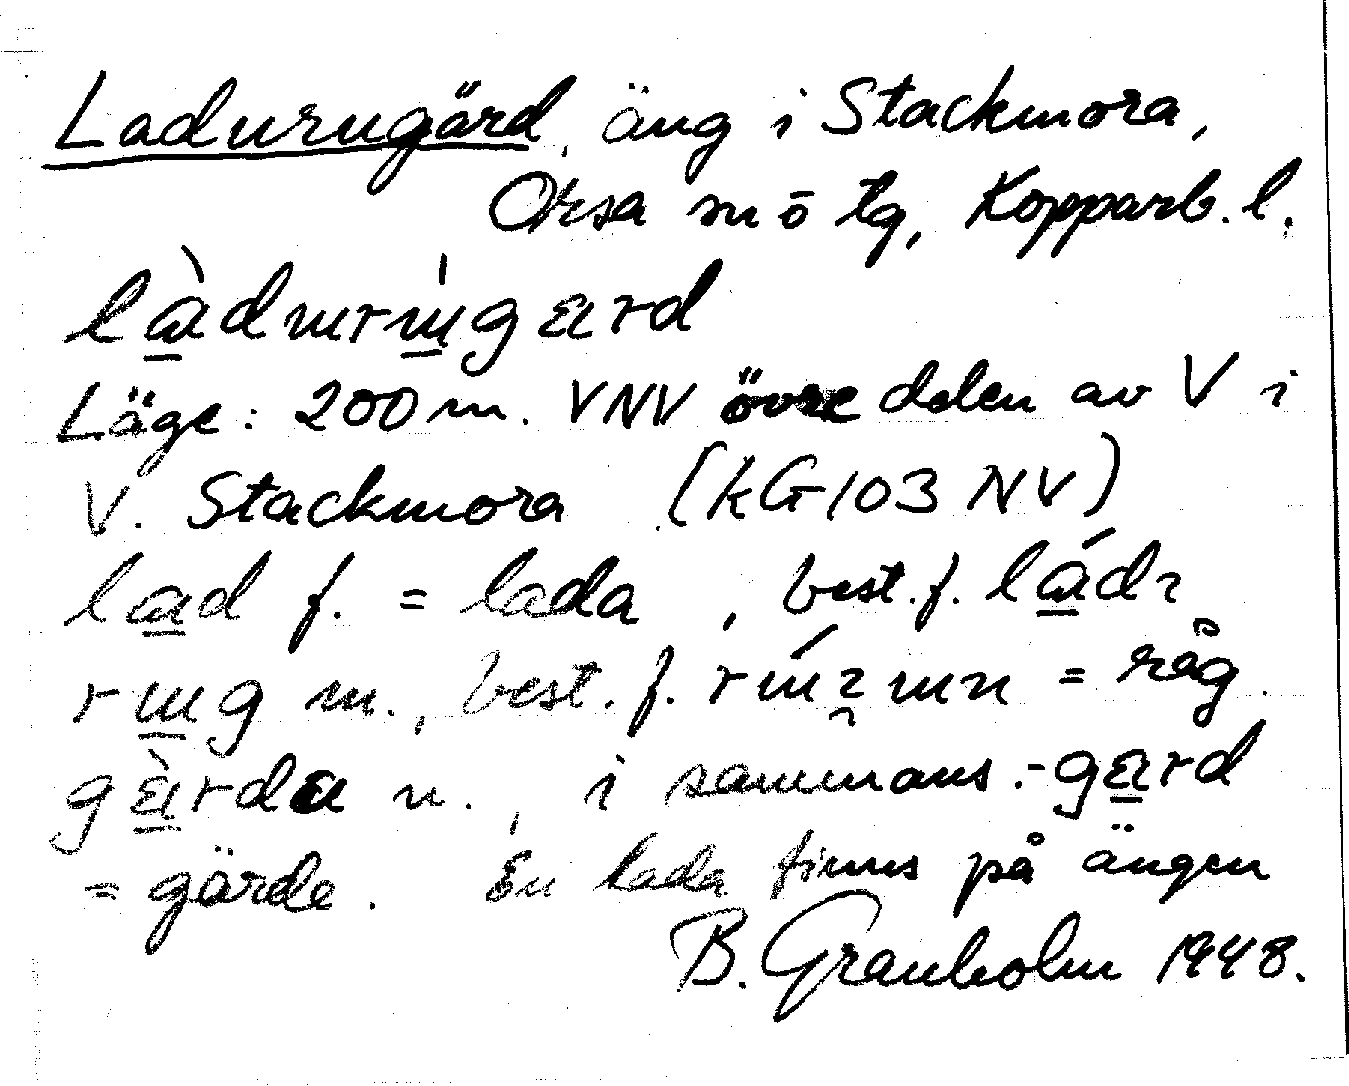 Ladurugärd, äng i Stackmora,
Orsa sn ö tg, Kopparb. l.
Läge: 200 m. VNV övre delen av V i
V. Stackmora (KG 103 NV)
lad f. = lada, best. f.
m., best. f. = råg
n., i sammans. -
= gärde. En lada finns på ängen
B. Granholm 1948.